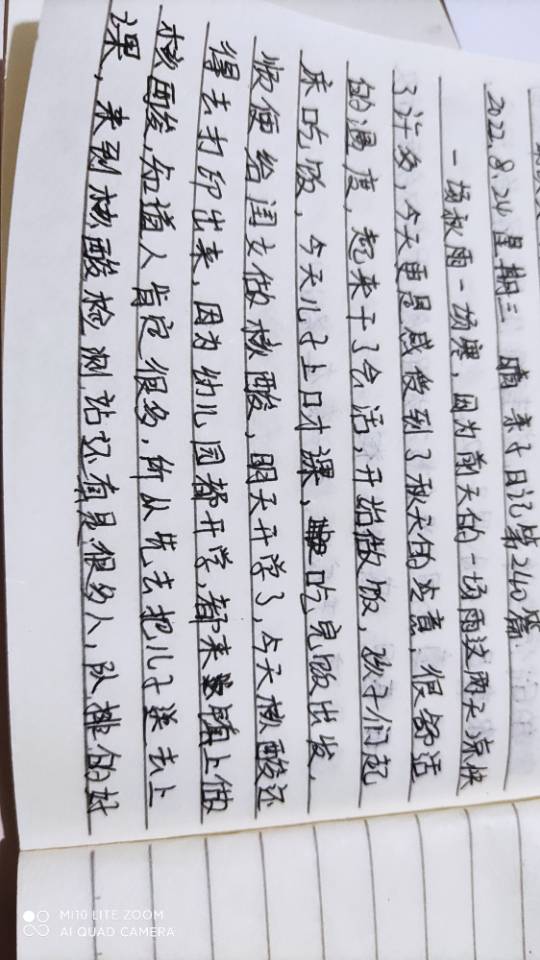 2022.8.24 星期三 晴 亲子日记第240篇
一场秋雨一场寒,因为前天的一场雨这两天凉快
了许多,今天更是感受到了秋天的冷意,很舒适
的温度,起来干了会活,开始做饭,孩子们起
床吃饭,今天儿子上口才课,吃完饭出发,
顺便给闺女做核酸,明天开学了,今天核酸还
得去打印出来,因为幼儿园都开学,都来上做
核酸,知道人肯定很多,所从先去把儿子送去上
课,来到核酸检测站还有是很多人,队排的好
MI10 LITE ZOOM
AI QUAD CAMERA